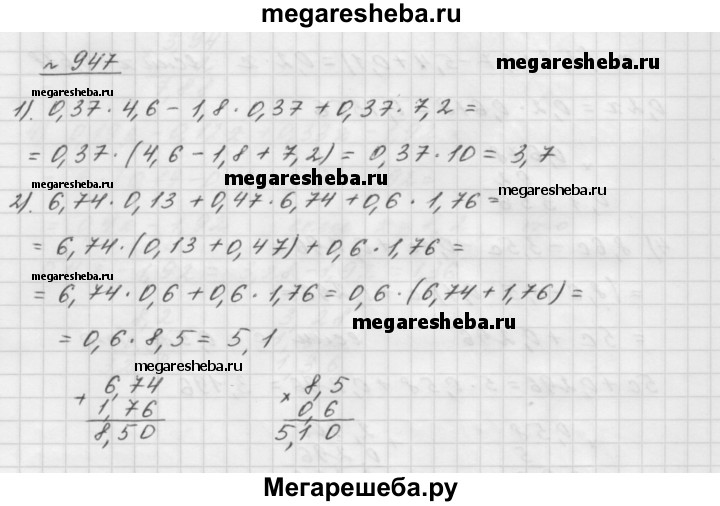 megaresheba.ru
№ 947
megaresheba.ru
megaresheba.ru
1). 0,37 · 4,6 - 1,8 · 0,37 + 0,37 · 7,2 =
= 0,37 · (4,6 - 1,8 + 7,2) = 0,37 · 10 = 3,7
megaresheba.ru
megaresheba.ru
megaresheba.ru
2). 6,74 · 0,13 + 0,47 · 6,74 + 0,6 · 1,76 =
= 6,74 · (0,13 + 0,47) + 0,6 · 1,76 =
megaresheba.ru
= 6,74 · 0,6 + 0,6 · 1,76 = 0,6 · (6,74 + 1,76) =
megaresheba.ru
= 0,6 · 8,5 = 5,1
megaresheba.ru
+ 6,74
1,76
8,50
× 8,5
0,6
5,10
Мегарешеба.ру